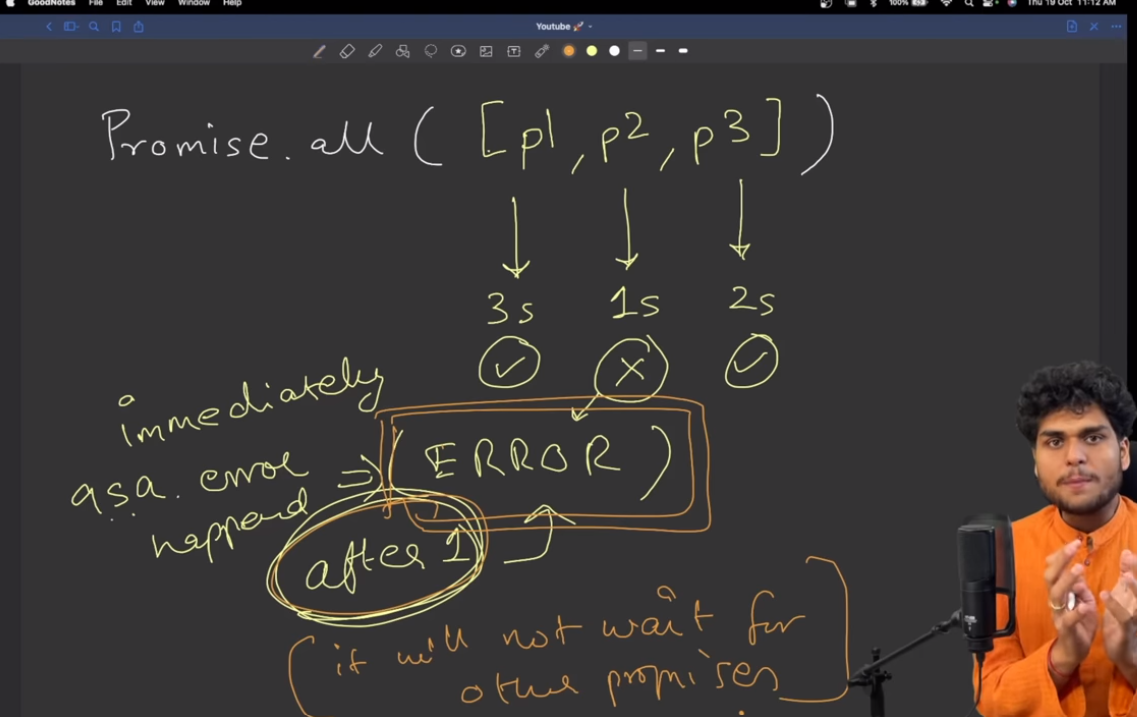 GoodNotes File Edit View Window Help 100% Thu 19 Oct 11:12 AM
Youtube 🚀
Promise.all ( [p1, p2, p3] )
3s 1s 2s
immediately
a.s.a. error
happend
( ERROR )
after 1
it will not wait for
other promises